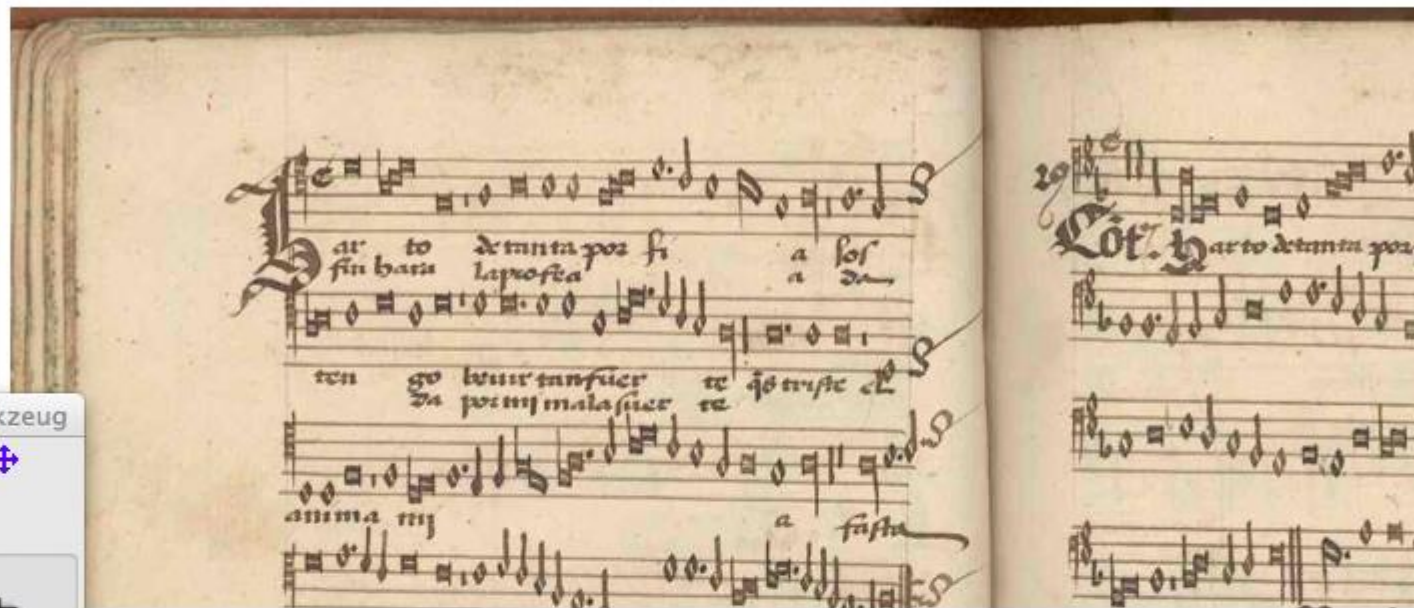 Har to de tanta por fi a los
fin hara la prosea a da
ten go beuir tan fuer te q̃s triste el
da por mi mala suer te
anima mj a fasta
kzeug
29
Cõt. Harto de tanta por